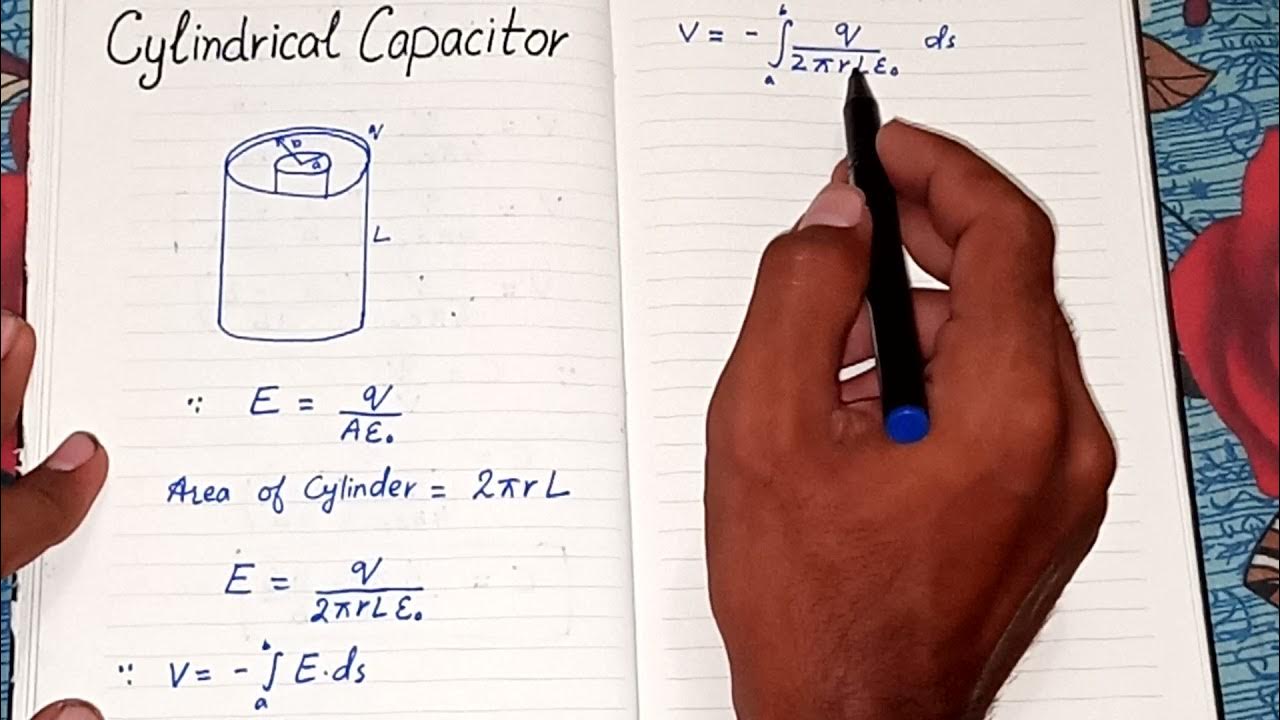 Cylindrical Capacitor
b
a
L
∵ E = q / Aε₀
Area of Cylinder = 2πrL
E = q / 2πrLε₀
∵ V = - ∫ₐᵇ E.ds
V = - ∫ₐᵇ q / 2πrLε₀ ds